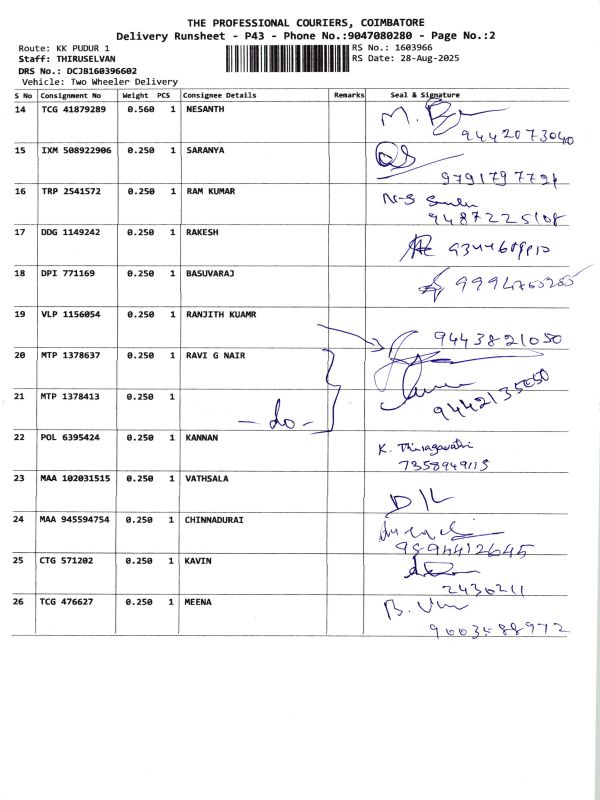 THE PROFESSIONAL COURIERS, COIMBATORE
Delivery Runsheet - P43 - Phone No.:9047080280 - Page No.:2
Route: KK PUDUR 1 RS No.: 1603966
Staff: THIRUSELVAN RS Date: 28-Aug-2025
DRS No.: DCJB160396602
Vehicle: Two Wheeler Delivery
S No Consignment No Weight PCS Consignee Details Remarks Seal & Signature
14 TCG 41879289 0.560 1 NESANTH
9442073040
15 IXM 508922906 0.250 1 SARANYA
16 TRP 2541572 0.250 1 RAM KUMAR
9487225108
17 DDG 1149242 0.250 1 RAKESH
18 DPI 771169 0.250 1 BASUVARAJ
19 VLP 1156054 0.250 1 RANJITH KUAMR
9443821050
20 MTP 1378637 0.250 1 RAVI G NAIR
21 MTP 1378413 0.250 1
- do -
9442135050
22 POL 6395424 0.250 1 KANNAN
K. Thiragavathi
7358949115
23 MAA 102031515 0.250 1 VATHSALA
D/L
24 MAA 945594754 0.250 1 CHINNADURAI
9894412645
25 CTG 571202 0.250 1 KAVIN
2436211
26 TCG 476627 0.250 1 MEENA
9003588972